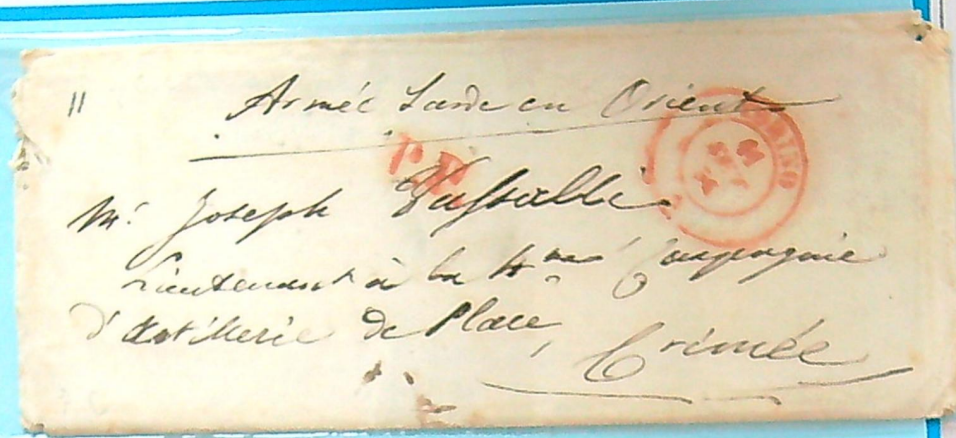 11
Armée Sarde en Orient
P.P.
TORINO
Mr. Joseph Vassalli
Lieutenant à la 4me Compagnie
d'Artillerie de Place,
Crimée